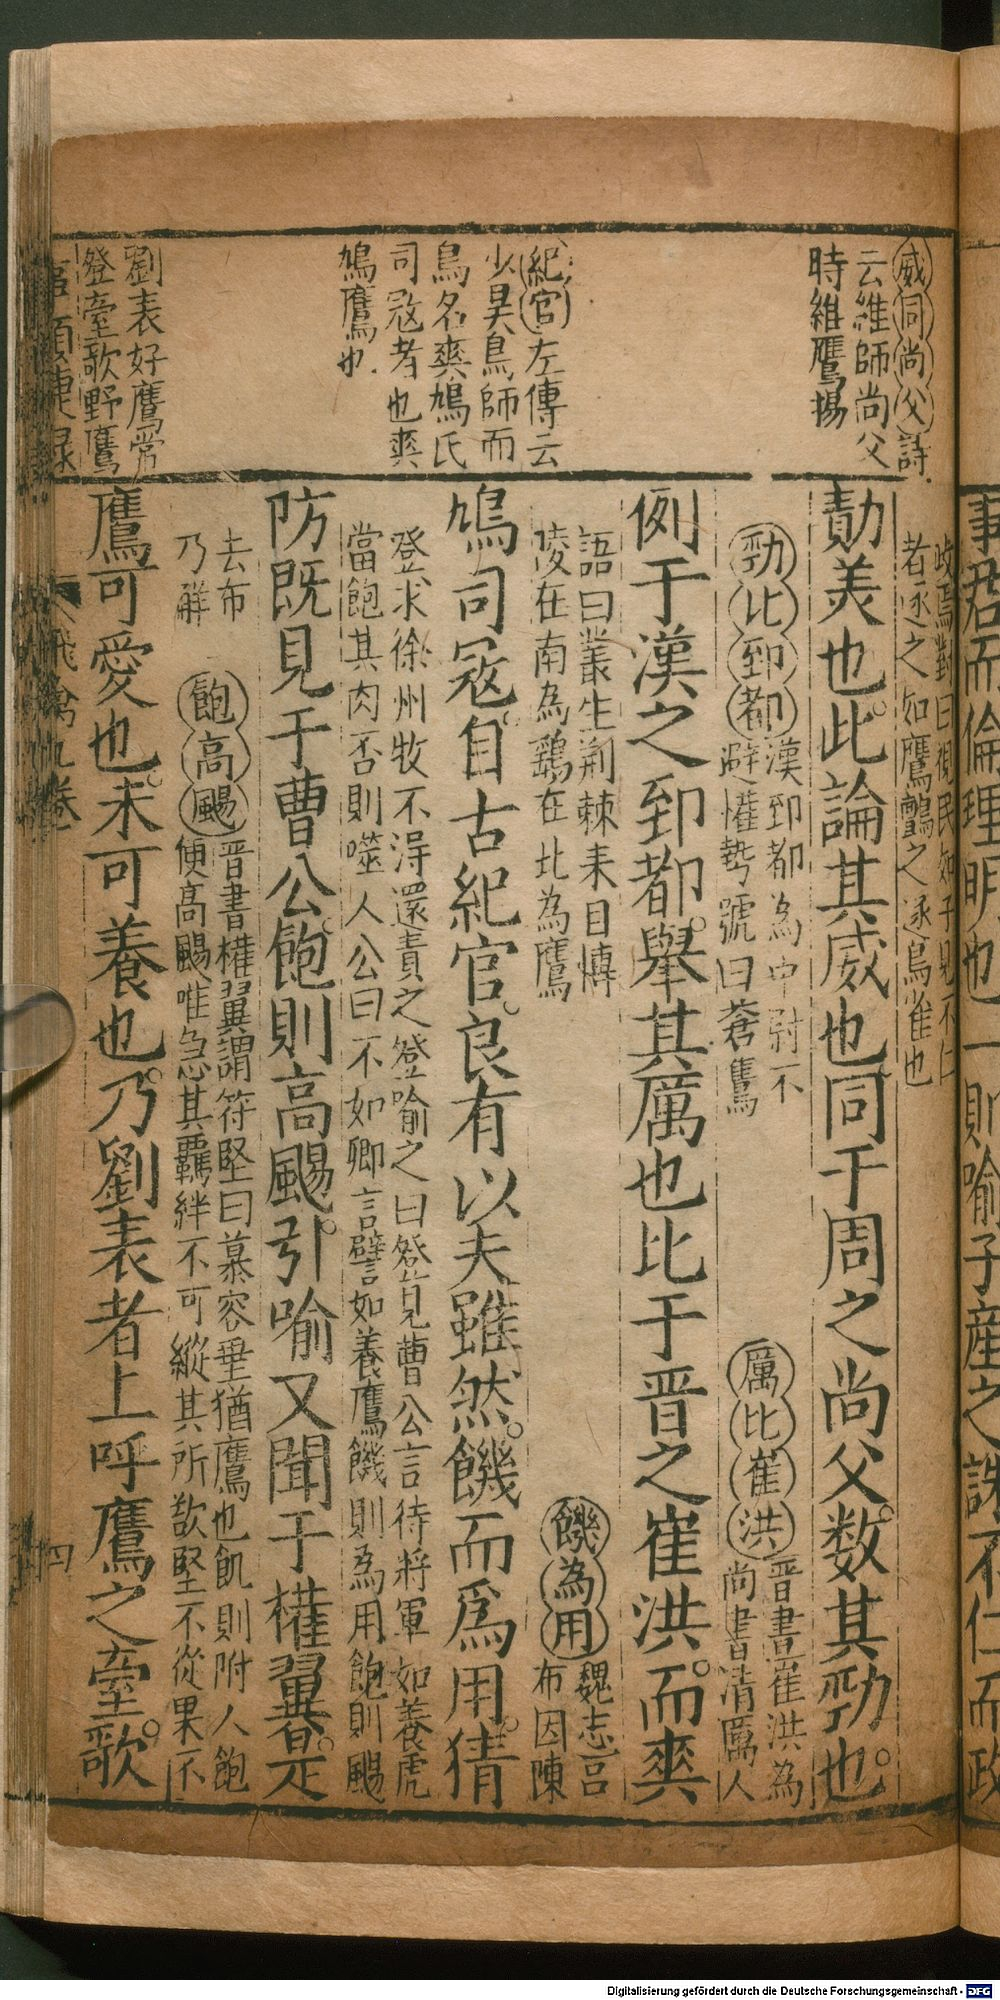 威同尚父詩
云維師尚父
時維鷹揚
紀官左傳云
少昊鳥師而
鳥名爽鳩氏
司寇者也爽
鳩鷹也
劉表好鷹常
登臺歌野鷹
事君而倫理明也一則喻子產之誅不仁而政
歧焉對曰視民如子見不仁
者逐之如鷹鸇之逐鳥雀也
勣美也此論其威也同于周之尚父数其勁也
勁比郅都
漢郅都為中尉不
避權勢號曰蒼隼
厲比崔洪
晉書崔洪為
尚書清厲人
例于漢之郅都舉其厲也比于晋之崔洪而爽
語曰叢生荆棘来目博
陵在南為鷂在北為鷹
饑為用
魏志吕
布因陳
鳩司冦自古紀官良有以夫雖然饑而爲用猜
登求徐州牧不得還責之登喻之曰登見曹公言待將軍如養虎
當飽其肉否則噬人公曰不如卿言譬如養鷹饑則為用飽則颺
防既見于曹公飽則高颺引喻又聞于權翼是
去布
乃觧
飽高颺
晋書權翼謂符堅曰慕容垂猶鷹也飢則附人飽
便高颺唯急其羈絆不可縱其所欲堅不從果不
鷹可愛也未可養也乃劉表者上呼鷹之臺歌
飛禽九卷
四
Digitalisierung gefördert durch die Deutsche Forschungsgemeinschaft - DFG